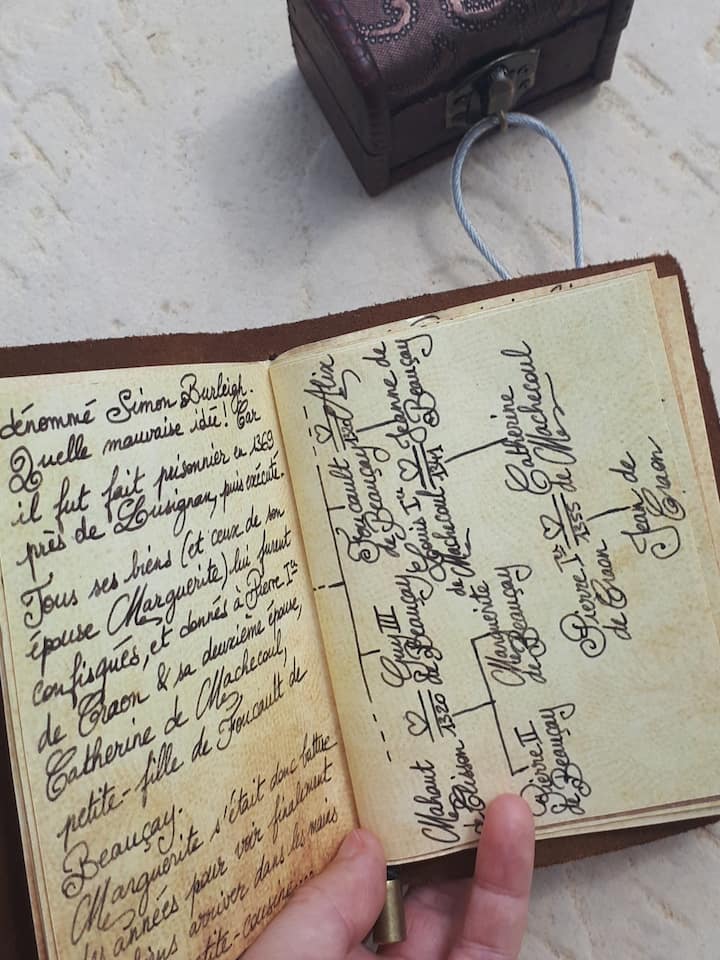 dénommé Simon Burleigh.
Quelle mauvaise idée! Car
il fut fait prisonnier en 1369
près de Lusignan, puis exécuté.
Tous ses biens (et ceux de son
épouse Marguerite) lui furent
confisqués, et donnés à Pierre Ier
de Craon & sa deuxième épouse,
Catherine de Machecoul,
petite-fille de Foucault de
Beauçay.
Marguerite s'était donc battue
des années pour voir finalement
biens arriver dans les mains
petite-cousine...
Mahaut
de Clisson
♡
1320
Guy III
de Beauçay
Foucault
de Beauçay
♡
Alix
Pierre II
de Beauçay
Marguerite
de Beauçay
Louis Ier
de Machecoul
♡
1341
Jeanne de
Beauçay
Pierre Ier
de Craon
♡
1355
Catherine
de Machecoul
Jean de
Craon